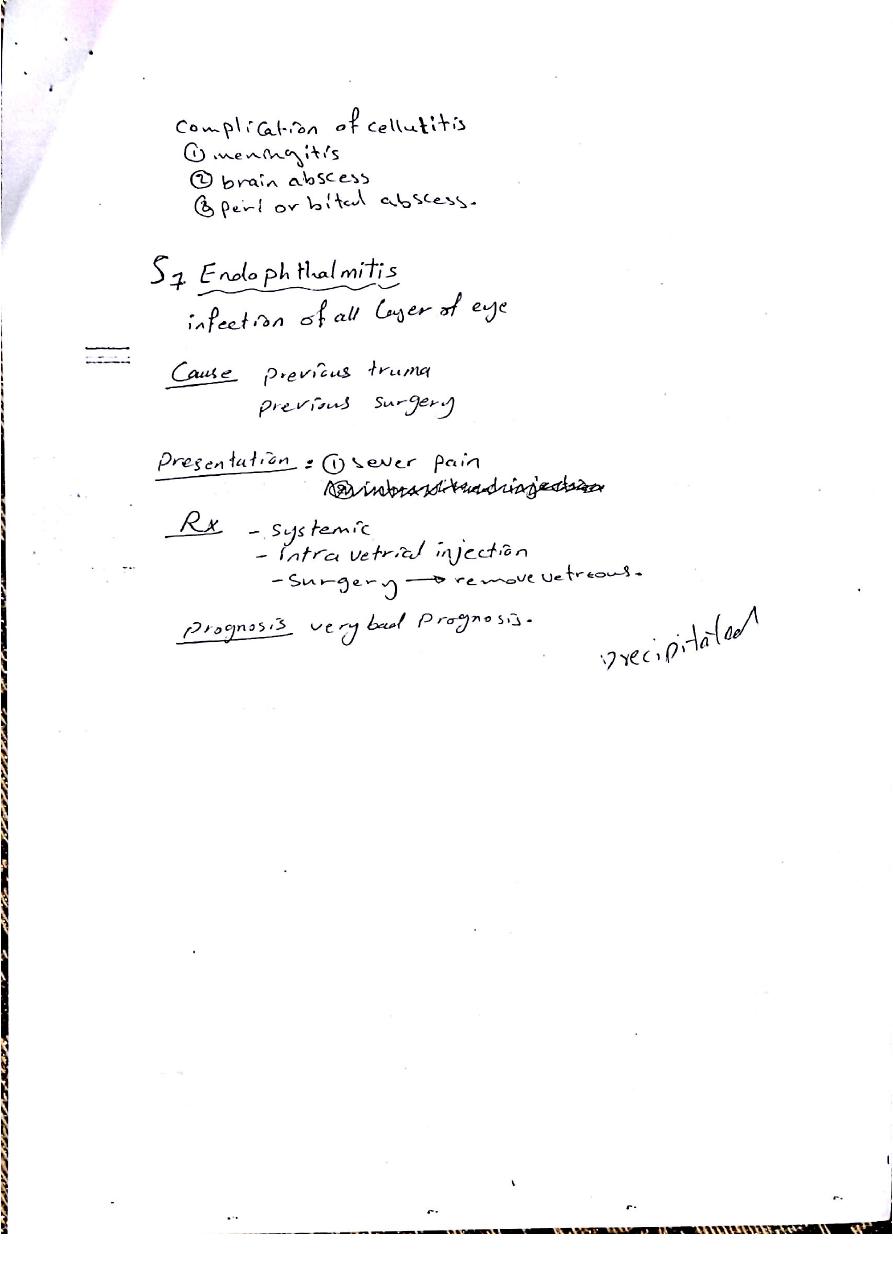 Complication of cellutitis
① meningitis
② brain abscess
③ peri orbital abscess.
S7 Endophthalmitis
infection of all layer of eye
Cause previous truma
previous surgery
Presentation : ① sever pain
Rx - systemic
- intra vetrial injection
- surgery → remove vetreous.
prognosis very bad prognosis.
precipitated